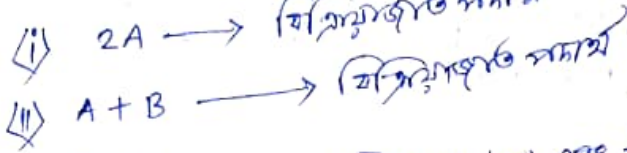 (i) 2A ⟶ বিক্রিয়াজাত পদার্থ
(ii) A + B ⟶ বিক্রিয়াজাত পদার্থ